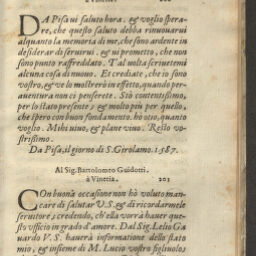 DA Pisa vi saluto hora. & voglio spera-
re, che questo saluto debba rinuouarui
alquanto la memoria di me, che sono ardente in
desiderar di seruirui. & vi prometto, che non
sono punto raffreddato. Tal volta scriuetemi
alcuna cosa di nuouo. Et crediate, che io sono
vostro, & ve lo mostrerò in effetto, quando per-
auentura non ci penserete. Stò contentissimo,
per lo stato presente; & molto più per quello,
che spero con buon fondamento. hò otio, quanto
voglio. Mihi viuo, & planè viuo. Resto vo-
strissimo.
Da Pisa, il giorno di S. Girolamo. 1587.
Al Sig. Bartolomeo Guidotti.
à Vinetia. 203
CON buona occasione non hò voluto man-
care di salutar V. S. & di ricordarmele
seruitore; credendo, ch'ella vorrà hauer que-
sto vfficio in grado d'amore. Dal Sig. Lelio Ga
uardo V. S. hauerà informatione dello stato
mio, & insieme di M. Lucio vostro figliuolo;